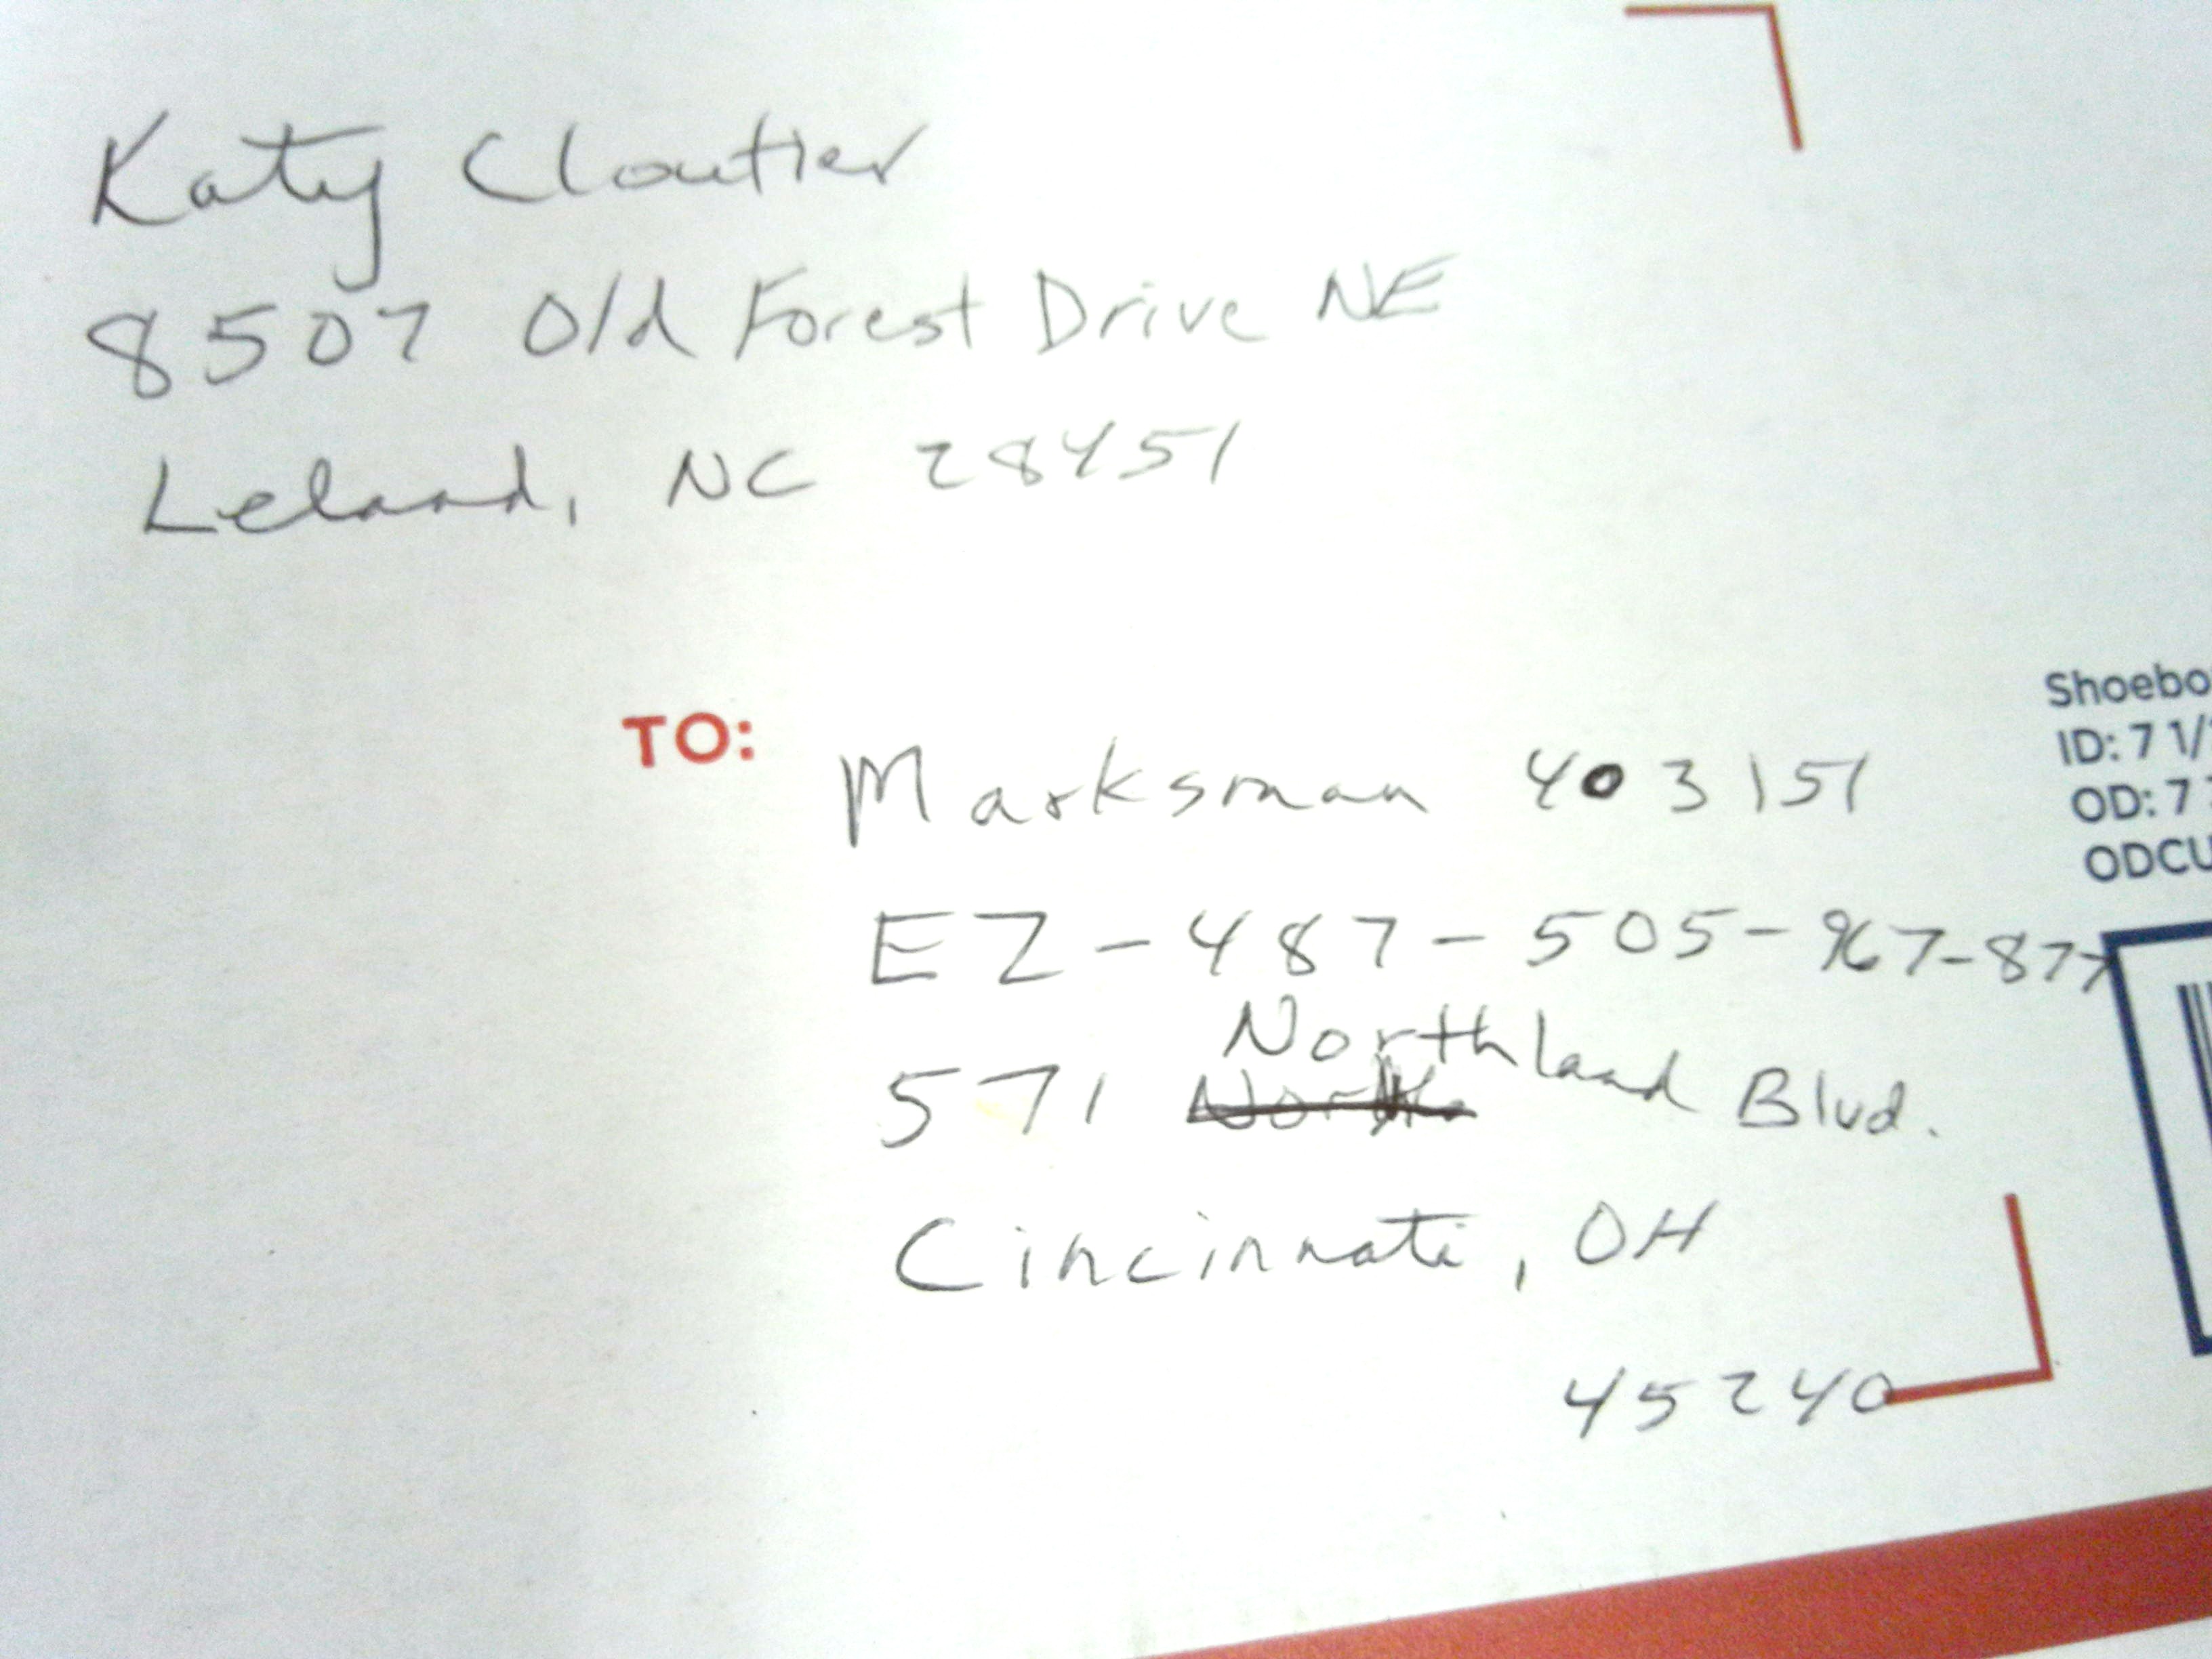 Katy Cloutier
8507 Old Forest Drive NE
Leland, NC 28451
TO:
Marksman 403151
EZ-487-505-967-877
571 Northland Blvd.
Cincinnati, OH
45240
Shoebo
ID: 7 1/
OD: 7
ODCU